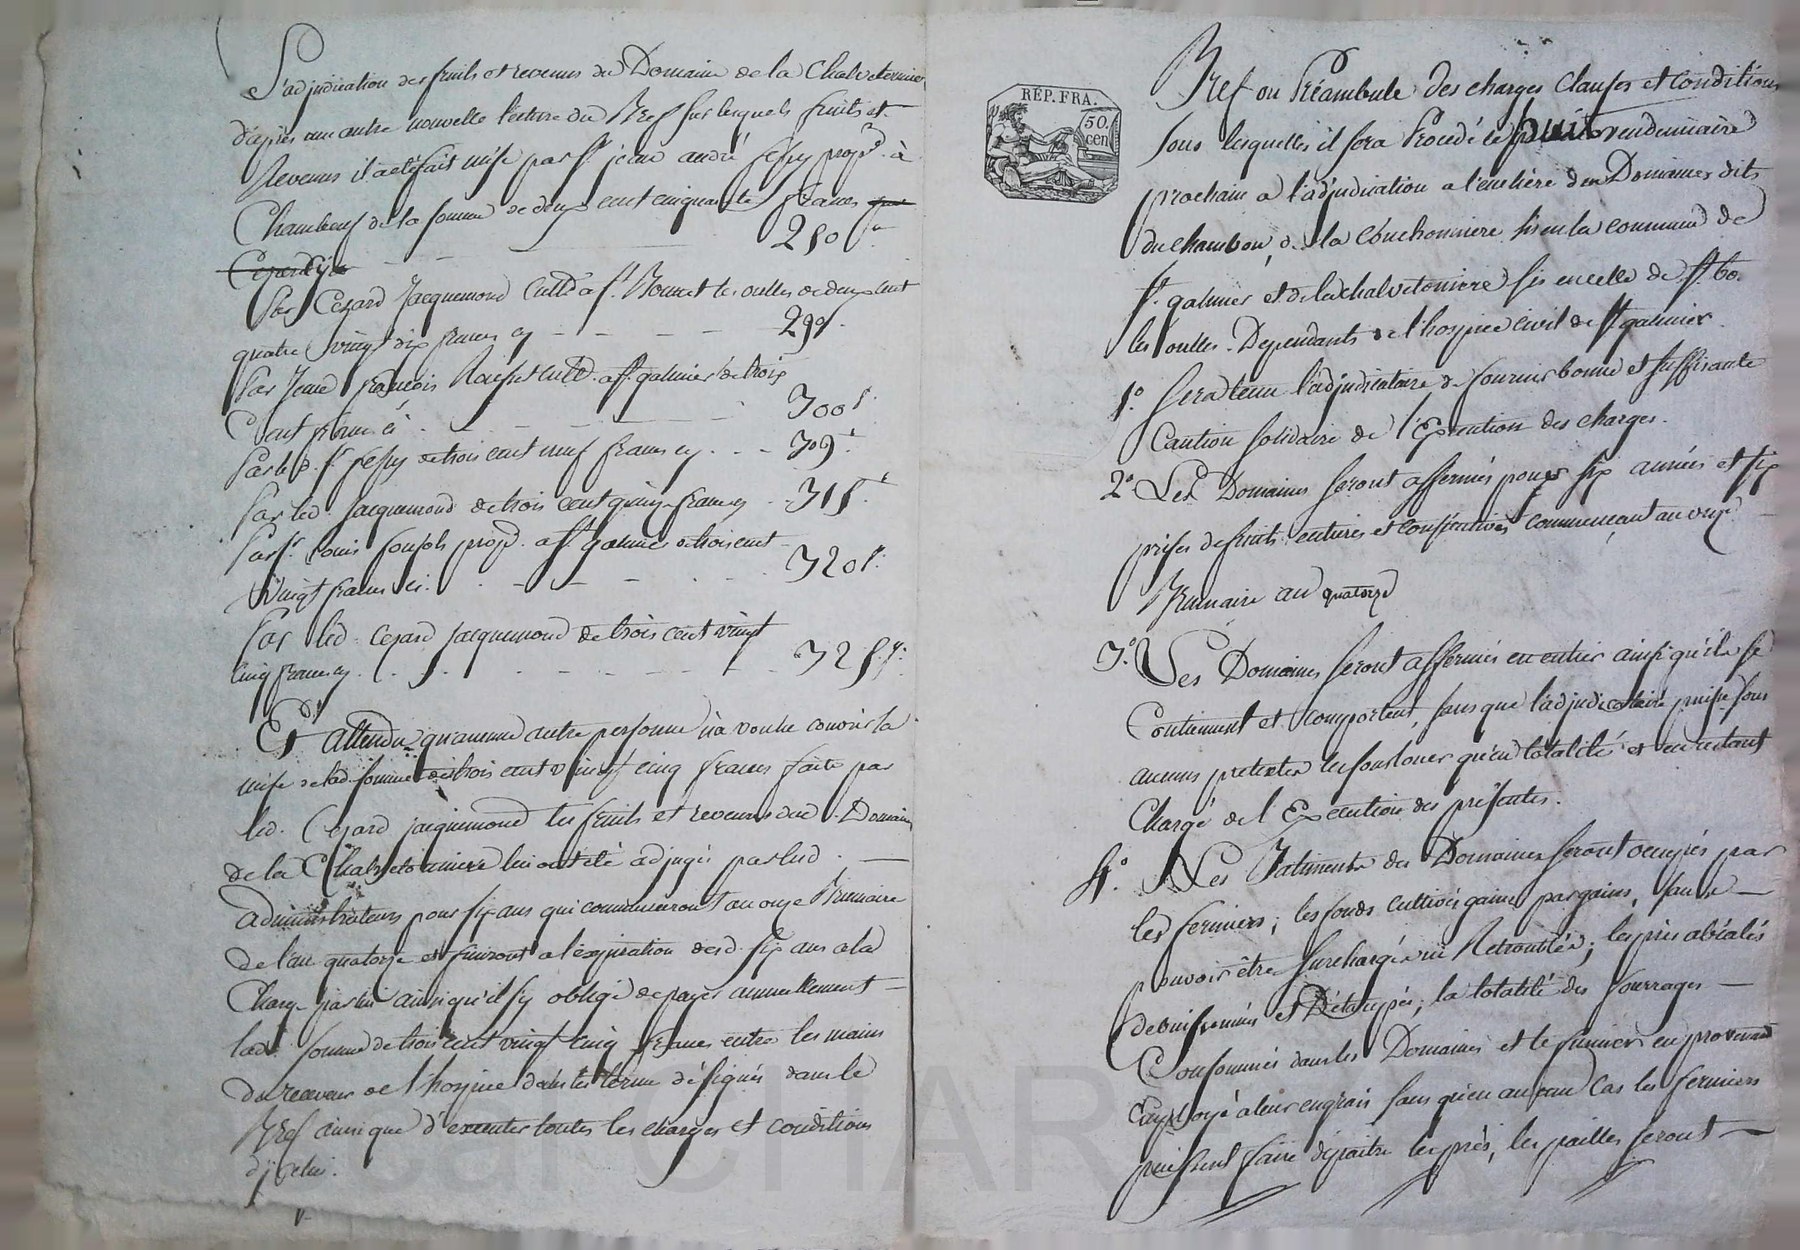 L'adjudication des fruits et revenus du Domaine de la Chalvetonniere
d'après une autre nouvelle lecture du Bref sur lesquels fruits et
Revenus il a été fait mise par Sr. jean andré pessy propre. à
Chambeuf de la somme de deux cent cinquante francs
250 f
Par Cezard Jacquemond cultr. a st. Bonnet les oulles de deux cent
quatre vingt dix francs cy - - - - 290 f.
Par Jean françois cultr. a st. galmier de trois
Cent francs ci - - - 300 f
Par led. sr. pessy de trois cent neuf francs cy - - 309 f
Par led. Jacquemond de trois cent quinze francs cy - 315 f
Par sr. Louis propre. a st. galmier de trois cent
vingt francs ci - - - - 320 f.
Par led. Cezard Jacquemond de trois cent vingt
cinq francs cy - - - - 325 f.
Et attendu qu'aucune autre personne n'a voulu couvrir la
mise de lad. somme de trois cent vingt cinq francs faite par
led. Cezard jacquemond les fruits et revenus dud. Domaine
de la Chalvetonniere lui ont été adjugés par lesd.
administrateurs pour six ans qui commenceront au onze Brumaire
de l'an quatorze et finiront a l'expiration desd. six ans a la
Charge par lui ainsi qu'il s'y oblige de payer annuellement
lad. somme de trois cent vingt cinq francs entre les mains
du receveur de l'hospice dans les terme désignés dans le
Bref ainsi que d'executer toutes les charges et conditions
d'icelui.
RÉP. FRA.
50.
cen
Bref ou Préambule des charges Clauses et conditions
sous lesquelles il sera Procédé le huit vendemiaire
prochain a l'adjudication a l'enchère des Domaines dits
du chambon, de la Couchonniere sis en la commune de
st. galmier et de la chalvetonniere sis en celle de st. bo.
les oulles. Dependants de l'hospice civil de st. galmier.
1°. Sera tenu l'adjudicataire de fournir bonne et suffisante
Caution solidaire de l'Execution des charges.
2°. Les Domaines seront affermés pour six années et six
prises de fruits entieres et consécutives commençant au onze
Brumaire an quatorze
3°. Les Domaines seront affermés en entier ainsi qu'ils se
Contiennent et comportent, sans que l'adjudicataire puisse sous
aucuns pretextes les souslouer qu'en totalité et en restant
Chargé de l'Execution des présentes.
4°. Les Batiments des Domaines seront occupés par
les fermiers; les fonds cultivés gains par gains, sans
pouvoir être surchargés ni Retroublés; les prés abéalés
debuissonnés et Détaupés; la totalité des fourrages
Consommés dans les Domaines et le fumier en provenant
Employé a leur engrais sans qu'en aucun Cas les fermiers
puissent faire dépaitre les prés, les pailles seront